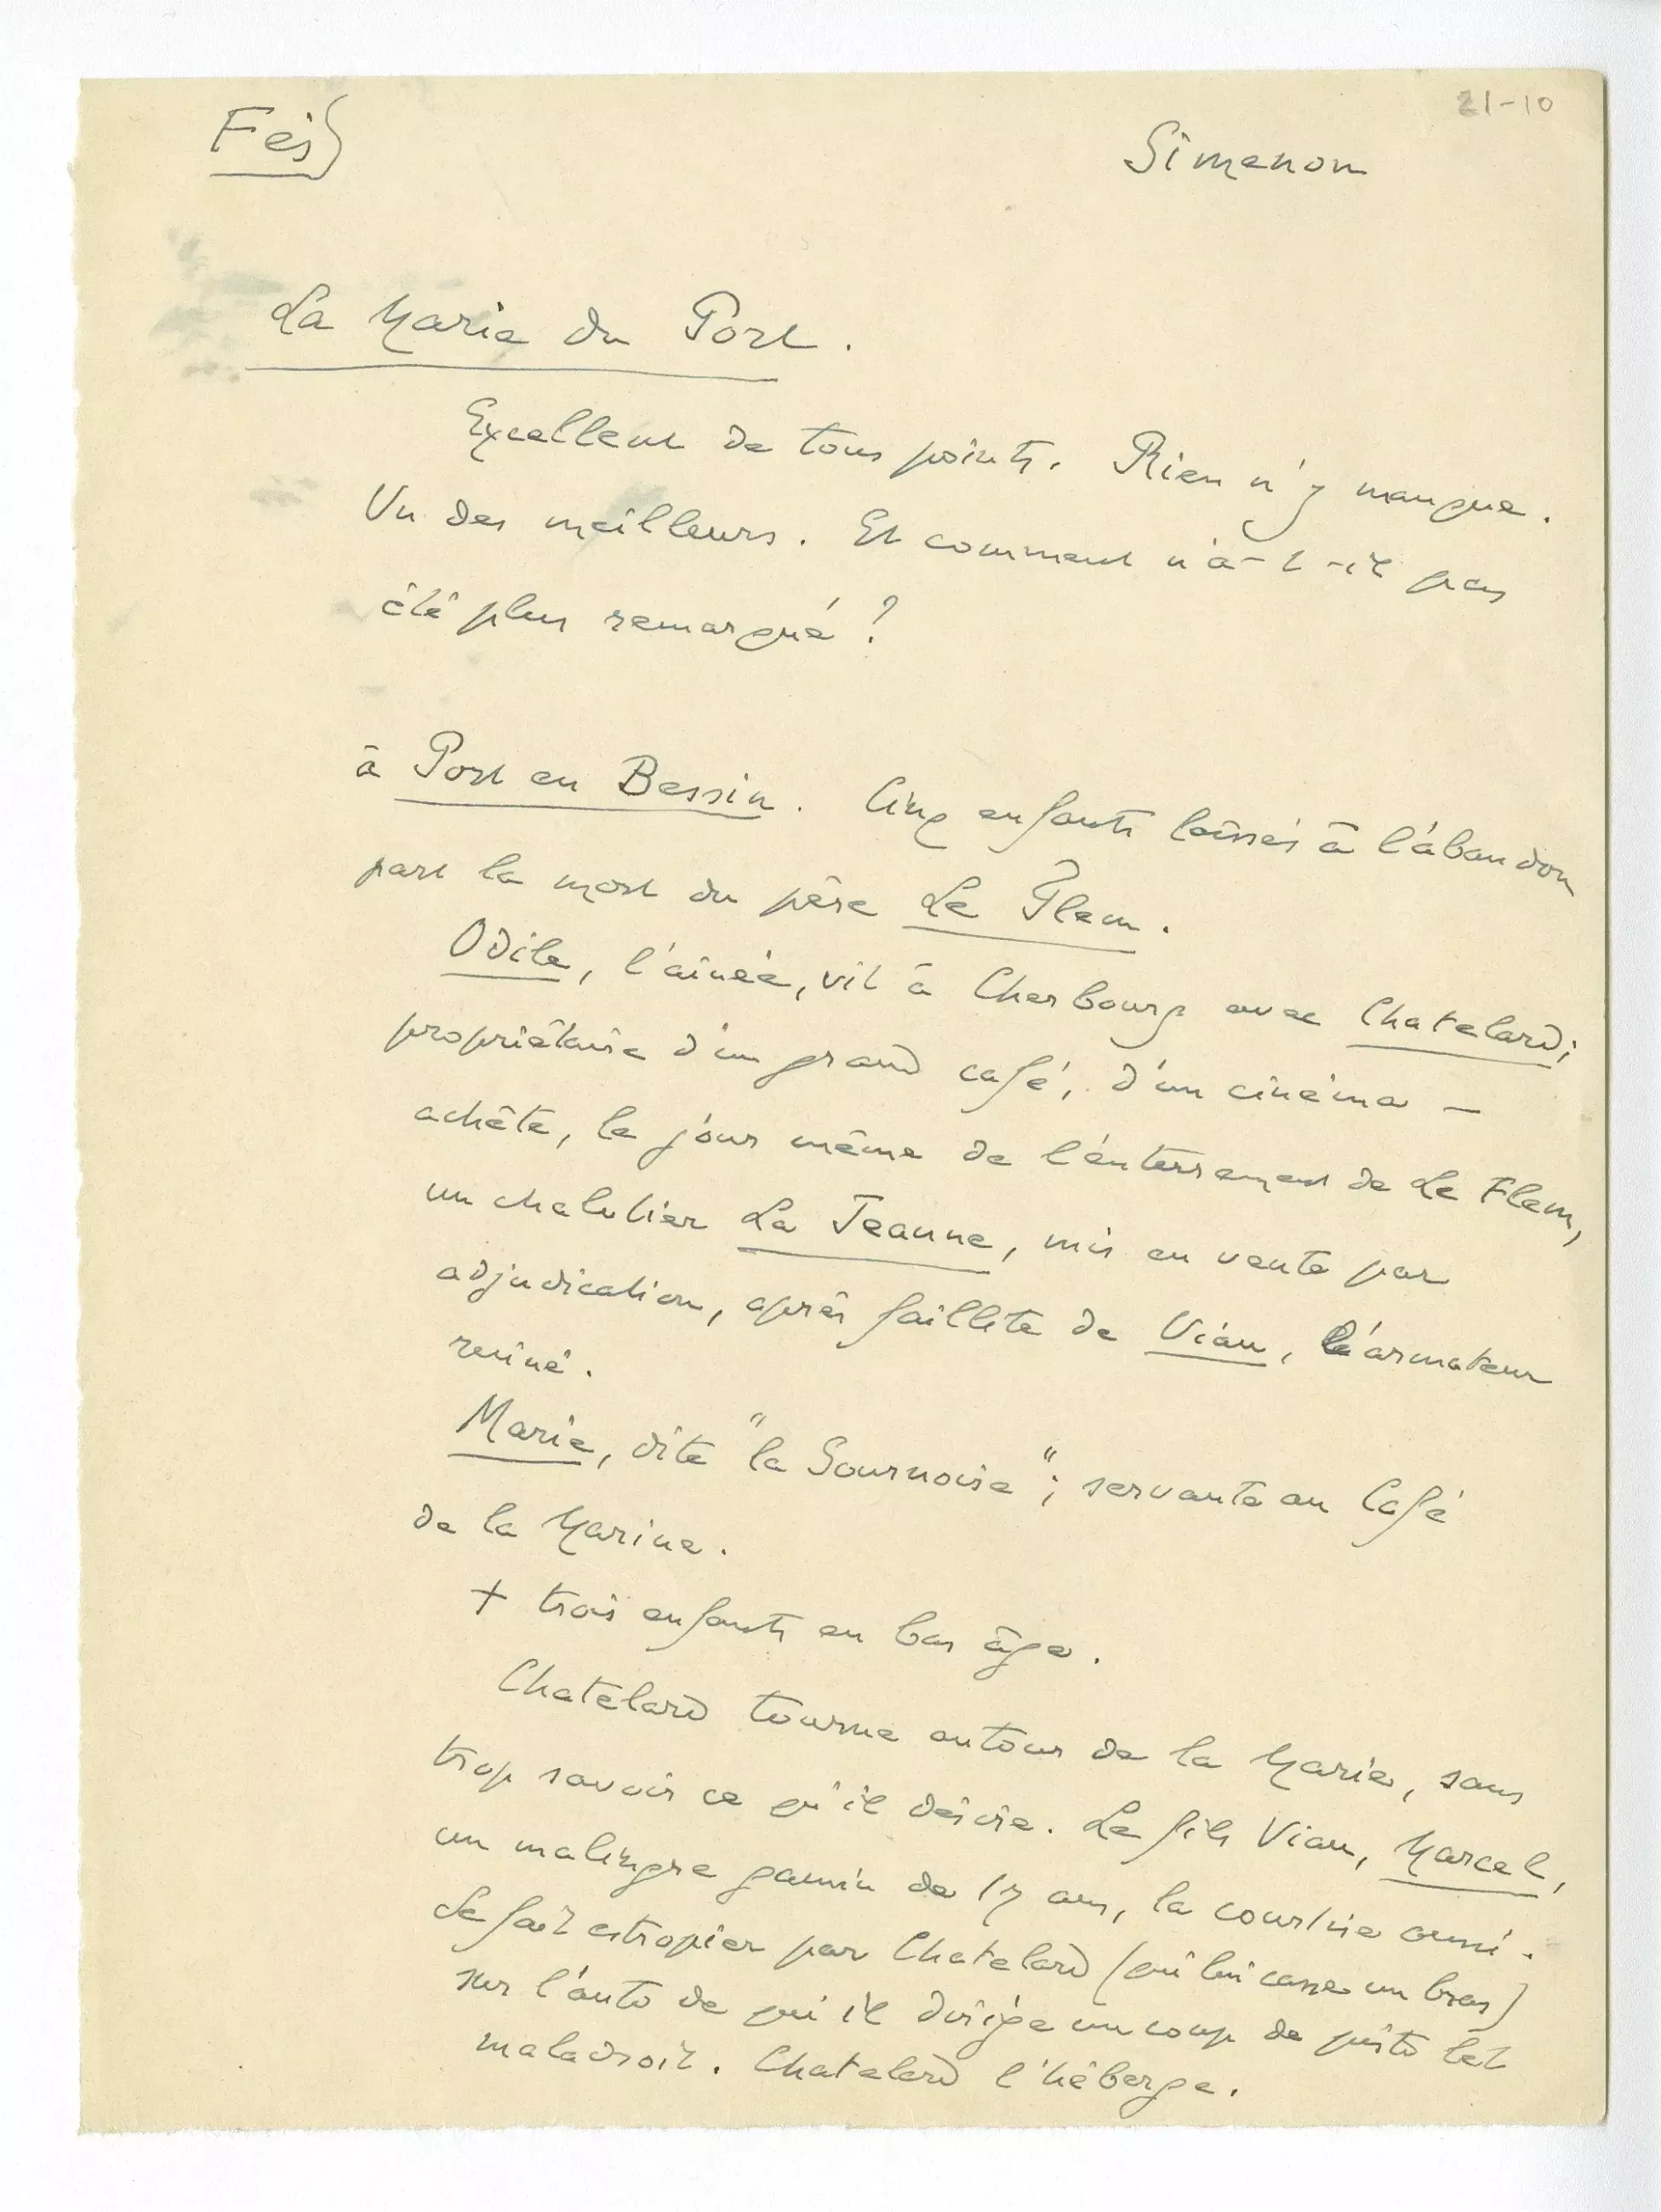 21-10
Fès
Simenon
La Marie du Port.
Excellent de tous points. Rien n'y manque.
Un des meilleurs. Et comment n'a-t-il pas
été plus remarqué ?
à Port en Bessin. Cinq enfants laissés à l'abandon
part la mort du père Le Flem.
Odile, l'aînée, vit à Cherbourg avec Chatelard ;
propriétaire d'un grand café, d'un cinéma —
achète, le jour même de l'enterrement de Le Flem,
un chalutier La Jeanne, mis en vente par
adjudication, après faillite de Viau, l'armateur
ruiné.
Marie, dite "la Sournoise" ; servante au Café
de la Marine.
+ trois enfants en bas âge.
Chatelard tourne autour de la Marie, sans
trop savoir ce qu'il désire. Le fils Viau, Marcel,
un malingre gamin de 17 ans, la courtise aussi.
Se fait estropier par Chatelard (qui lui casse un bras)
sur l'auto de qui il dirige un coup de pistolet
maladroit. Chatelard l'héberge.